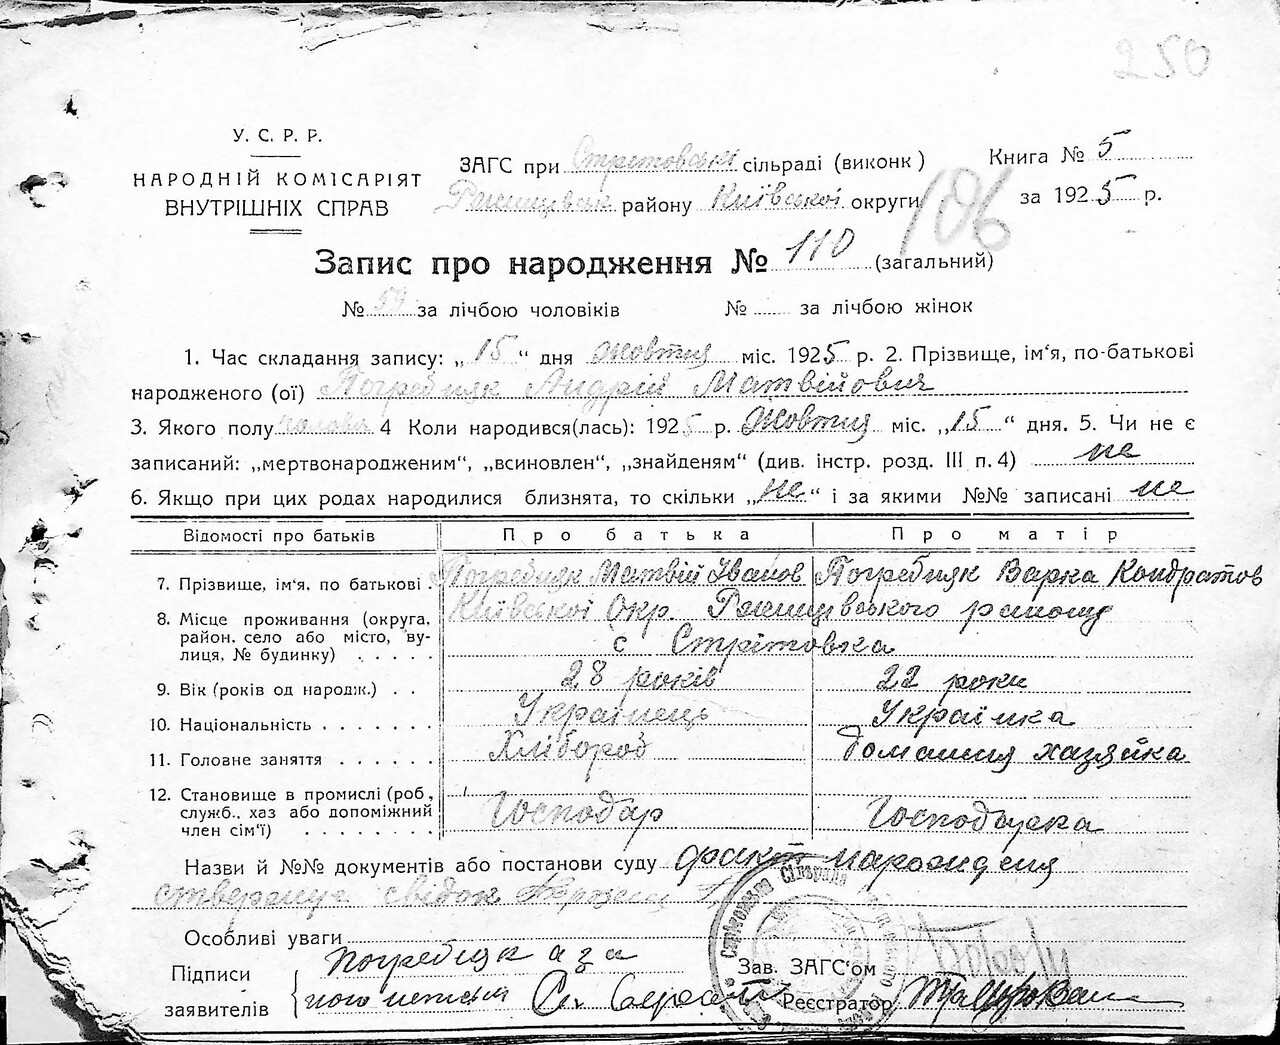 250
У. С. Р. Р.
НАРОДНІЙ КОМІСАРІЯТ
ВНУТРІШНІХ СПРАВ
ЗАГС при Стрітовські сільраді (виконк)
Ржищевськ району Київської округи
Книга № 5
за 1925 р.
106
Запис про народження № 110 (загальний)
№ 59 за лічбою чоловіків № за лічбою жінок
1. Час складання запису: „ 15 “ дня Жовтня міс. 1925 р. 2. Прізвище, ім‘я, по-батькові
народженого (ої) Погребняк Андрій Матвійович
3. Якого полу чоловіч 4 Коли народився(лась): 1925 р. Жовтня міс. „15 “ дня. 5. Чи не є
записаний: „мертвонародженим“, „всиновлен“, „знайденям“ (див. інстр. розд. III п. 4) не
6. Якщо при цих родах народилися близнята, то скільки „не“ і за якими №№ записані не
Відомості про батьків Про батька Про матір
7. Прізвище, ім‘я, по батькові Погребняк Матвій Іванов Погребняк Варка Кондратов
8. Місце проживання (округа, Київської Окр. Ржищівського району
район, село або місто, ву-
лиця, № будинку) с Стрітовка
9. Вік (років од народж.) 28 років 22 роки
10. Національність Українець Українка
11. Головне заняття Хлібороб домашня хазяйка
12. Становище в промислі (роб,
служб., хаз або допоміжний Господар Господарка
член сім‘ї)
Назви й №№ документів або постанови суду факт народження
стверджує свідок
Особливі уваги
Підписи Погребняк а за
заявителів його
Зав. ЗАГС‘ом
Реєстратор